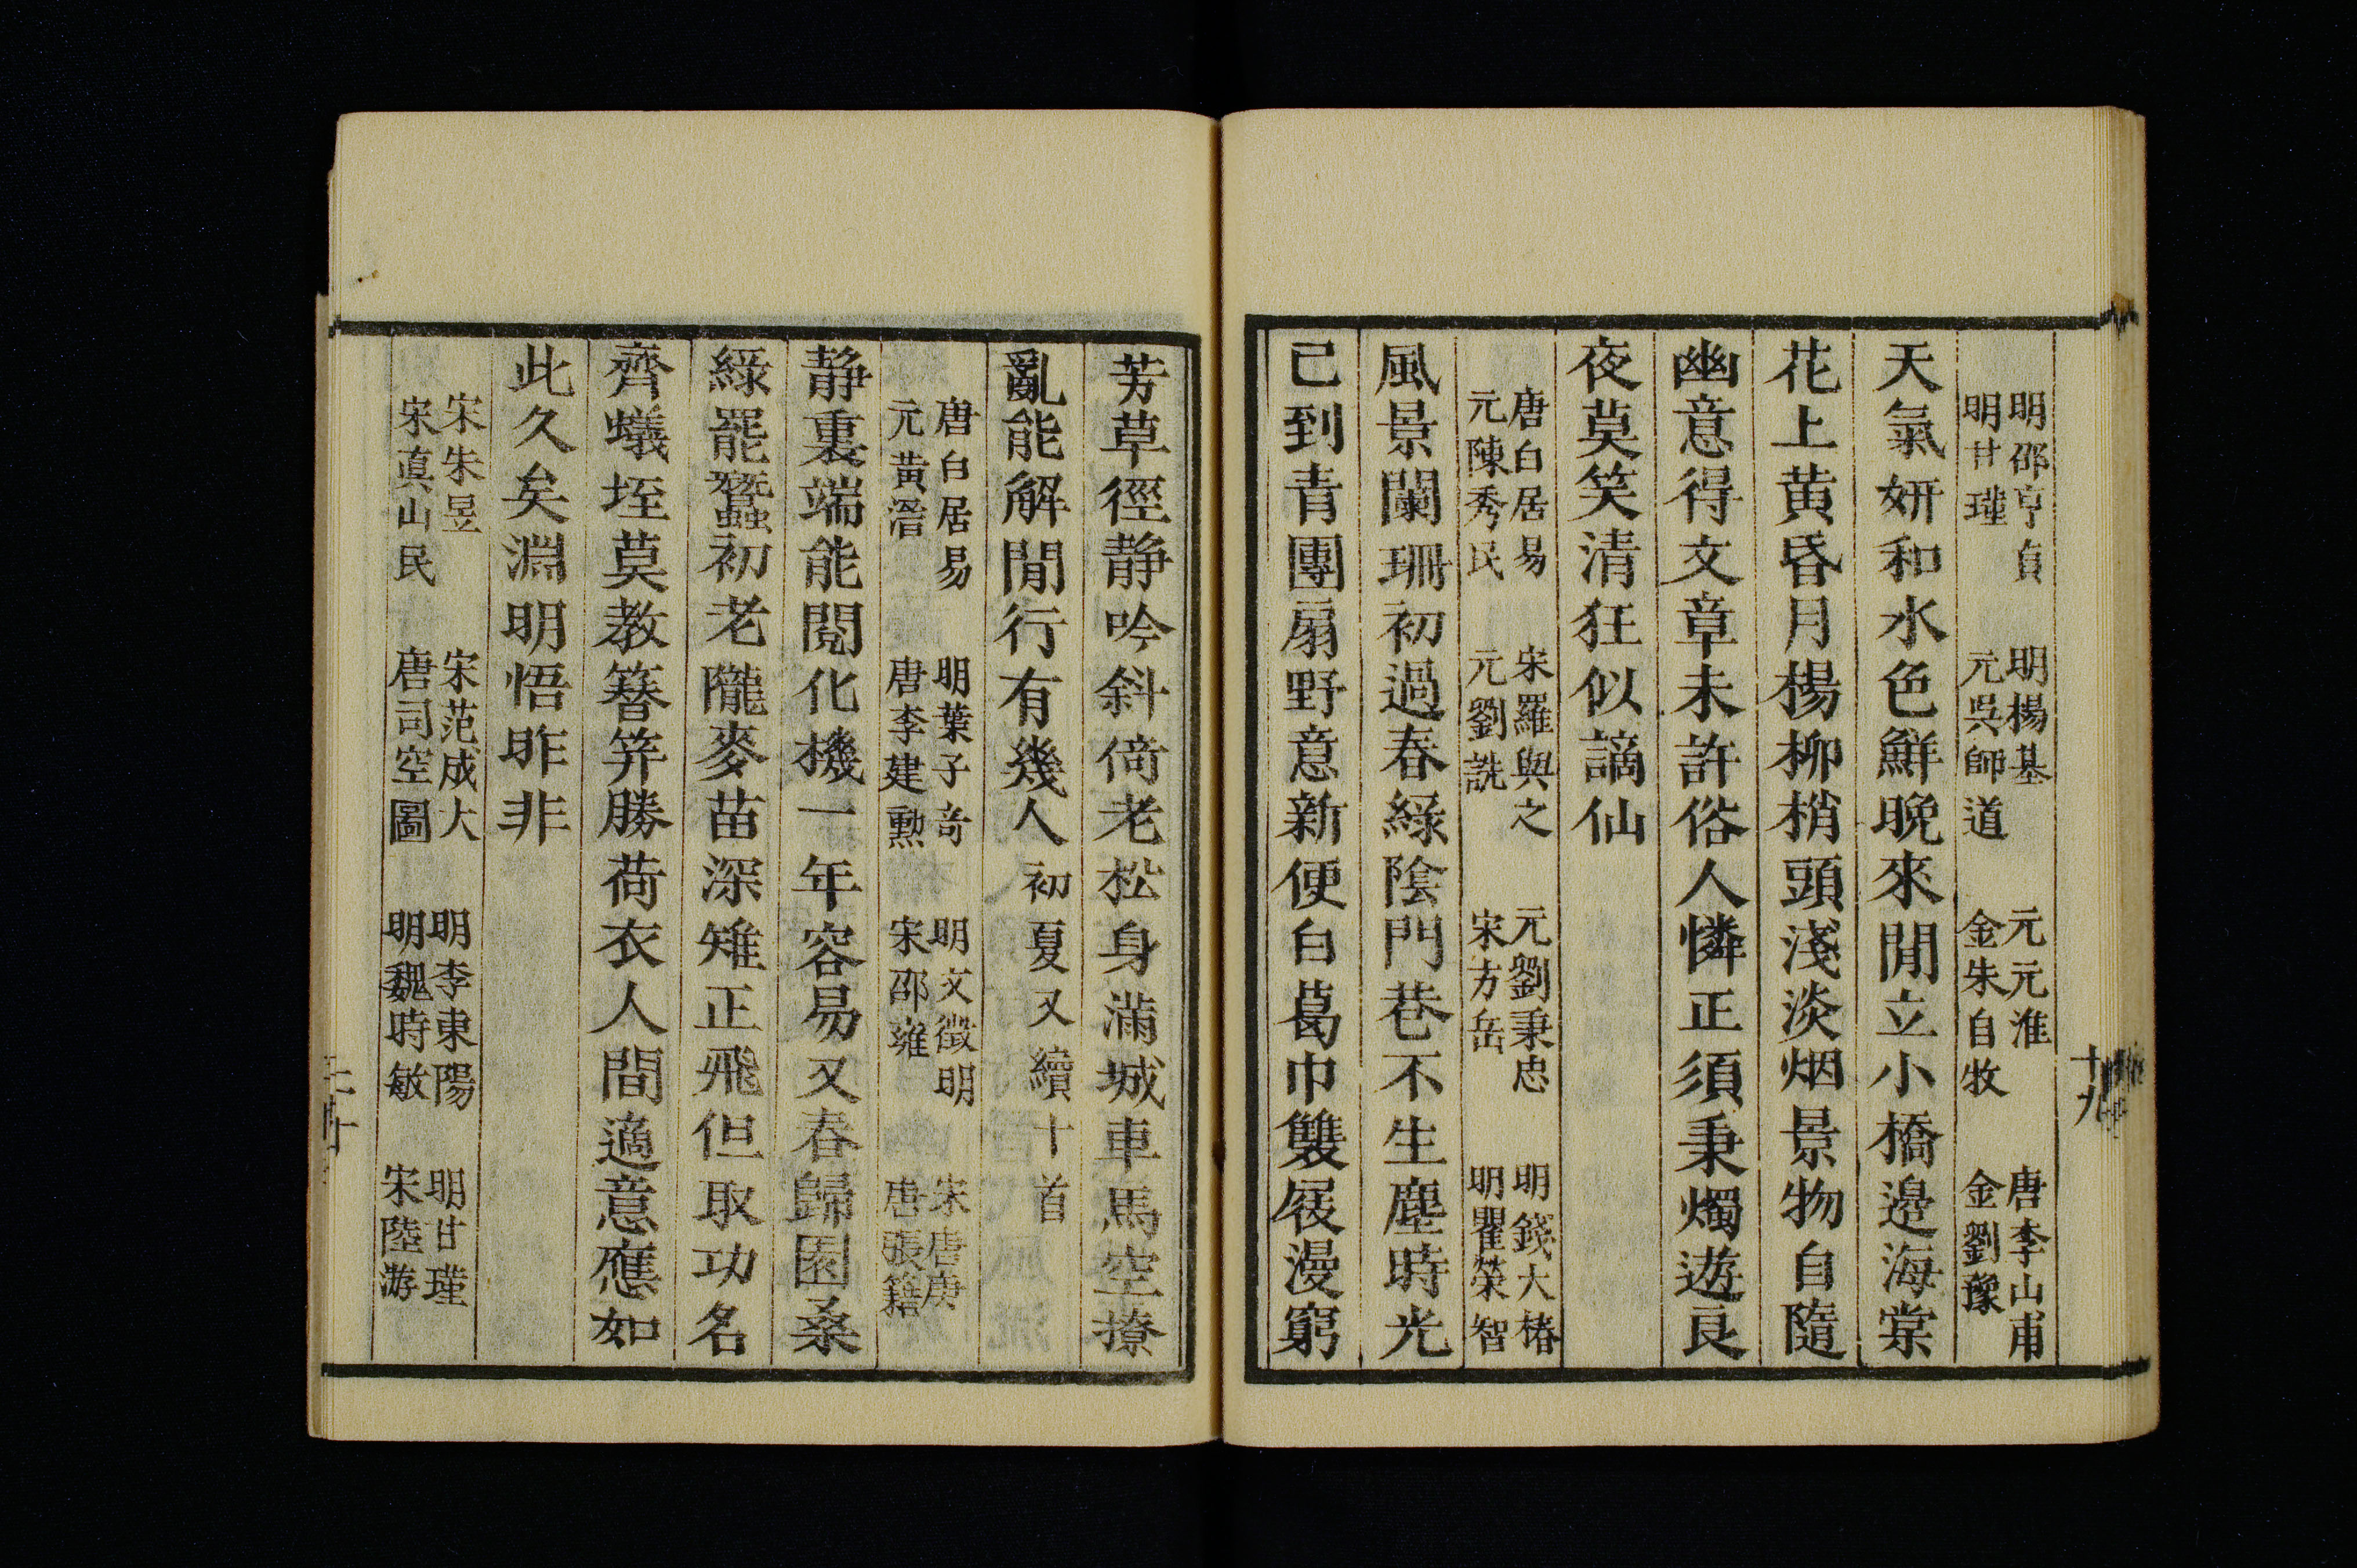 明邵亨貞　明楊基　元元淮　唐李山甫
明甘瑾　元吳師道　金朱自牧　金劉豫
天氣妍和水色鮮晚來閒立小橋邊海棠
花上黃昏月楊柳梢頭淺淡烟景物自隨
幽意得文章未許俗人憐正須秉燭遊良
夜莫笑清狂似謫仙
唐白居易　宋羅與之　元劉秉忠　明錢大椿
元陳秀民　元劉詵　宋方岳　明瞿榮智
風景闌珊初過春綠陰門巷不生塵時光
已到青團扇野意新便白葛巾雙屐漫窮
十九
芳草徑静吟斜倚老松身滿城車馬空撩
亂能解閒行有幾人初夏又續十首
唐白居易　明葉子奇　明文徵明　宋唐庚
元黃溍　唐李建勲　宋邵雍　唐張籍
静裏端能閱化機一年容易又春歸園桑
綠罷蠶初老隴麥苗深雉正飛但取功名
齊蟻垤莫教簪笄勝荷衣人間適意應如
此久矣淵明悟昨非
宋朱昱　宋范成大　明李東陽　明甘瑾
宋真山民　唐司空圖　明魏時敏　宋陸游